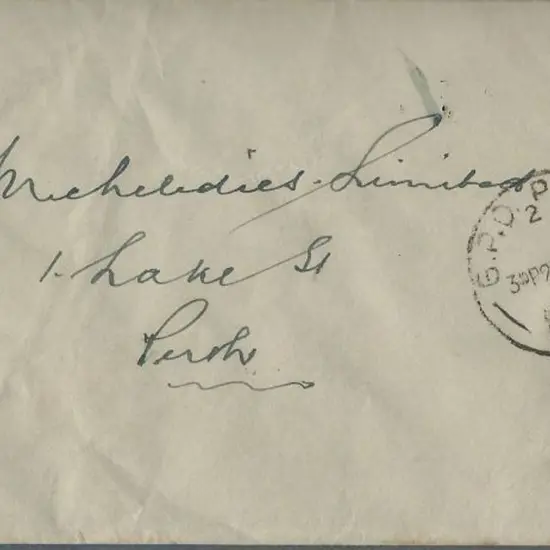 Micheledies Limited
1. Lake St
Perth
G.P.O. P
2